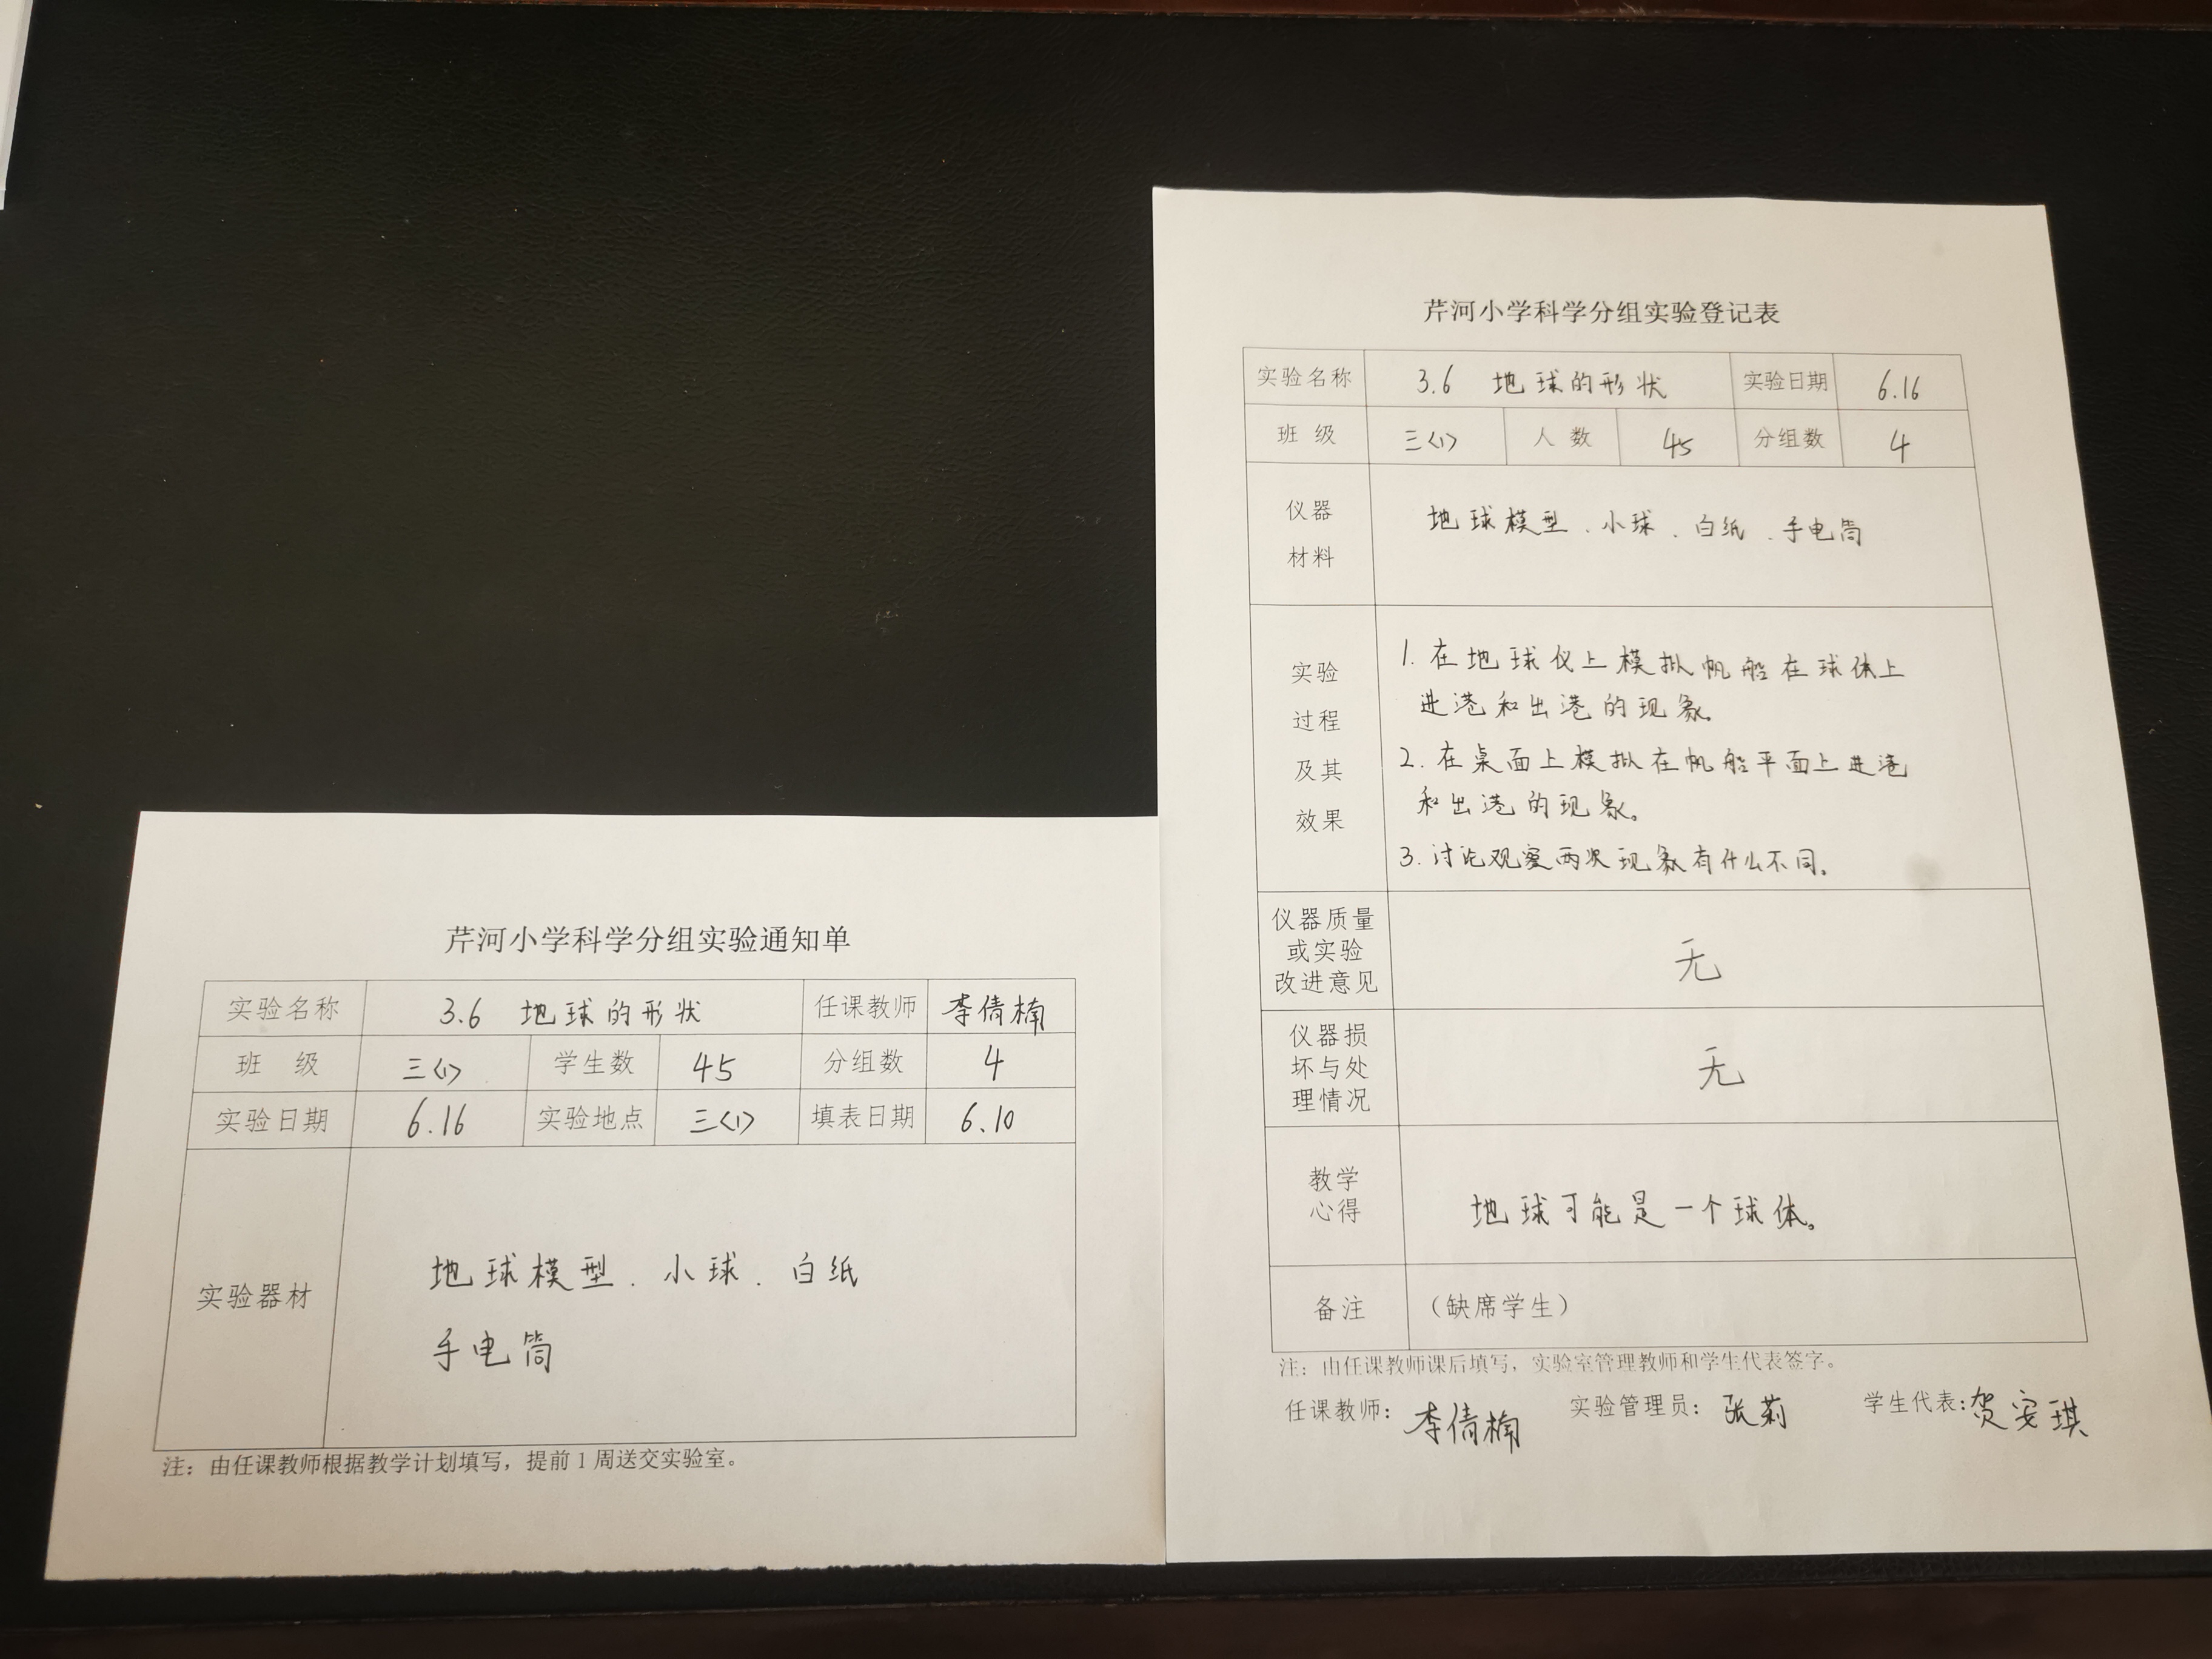 芹河小学科学分组实验通知单
实验名称 3.6 地球的形状 任课教师 李倩楠
班 级 三<1> 学生数 45 分组数 4
实验日期 6.16 实验地点 三<1> 填表日期 6.10
实验器材 地球模型、小球、白纸
手电筒
注：由任课教师根据教学计划填写，提前1周送交实验室。
芹河小学科学分组实验登记表
实验名称 3.6 地球的形状 实验日期 6.16
班 级 三<1> 人 数 45 分组数 4
仪器
材料
地球模型、小球、白纸、手电筒
实验
过程
及其
效果
1. 在地球仪上模拟帆船在球体上
进港和出港的现象。
2. 在桌面上模拟在帆船平面上进港
和出港的现象。
3. 讨论观察两次现象有什么不同。
仪器质量
或实验
改进意见
无
仪器损
坏与处
理情况
无
教学
心得
地球可能是一个球体。
备注 （缺席学生）
注：由任课教师课后填写，实验室管理教师和学生代表签字。
任课教师：李倩楠 实验管理员：张莉 学生代表：贺安琪